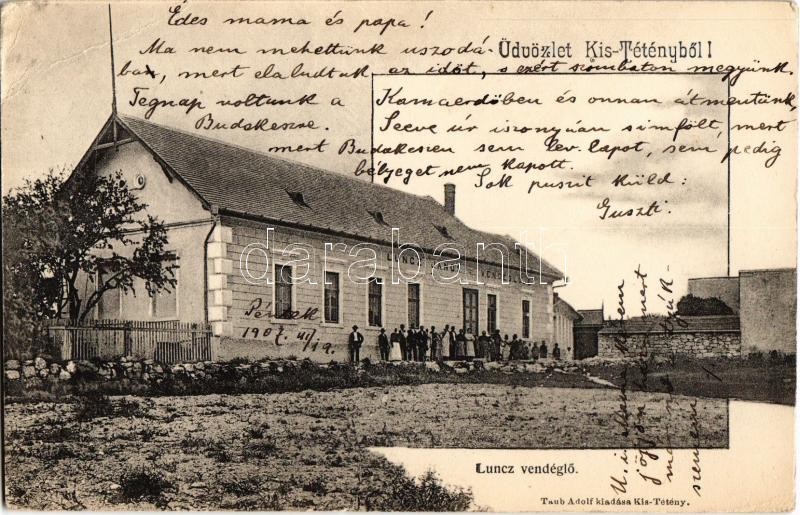 Édes mama és papa!
Üdvözlet Kis-Tétényből!
Ma nem mehettünk uszodá-
ba, mert elaludtuk az időt, s ezért szombaton megyünk.
Tegnap voltunk a Kamaerdőben és onnan átmentünk
Budakeszre. Seeve úr iszonyúan simfölt, mert
mert Budakeszen sem lev. lapot, sem pedig
bélyeget nem kapott.
Sok puszit küld:
Guszti.
LUNCZ
Péntek
1907. VII/19.
darabanth
U. i.
jöjjön
mert
Luncz vendéglő.
Taub Adolf kiadása Kis-Tétény.